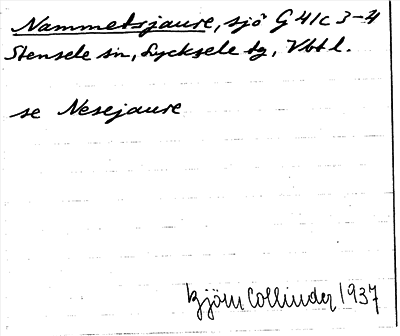 Nammetsjaure, sjö G 41 c 3-4
Stensele sn, Lycksele tg, Vbt l.
se Nesejaure
Björn Collinder 1937